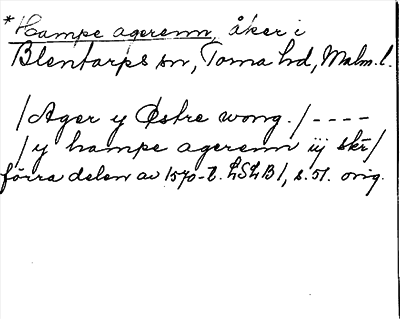 *Hampe agerenn, åker i
Blentarps sn, Torna hd, Malm.l.
/Ager y Østre wong./----
/y hampe agerenn iij skr/
förra delen av 1570-t. LSLB1, s.51. orig.